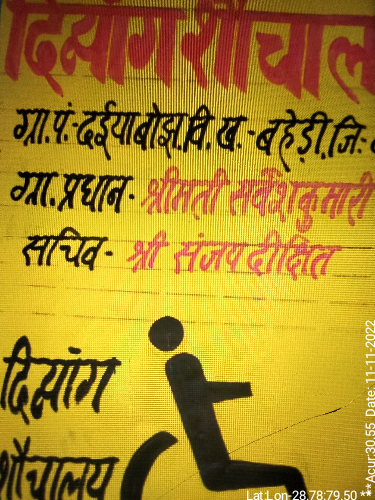 दिव्यांग शौचाल
ग्रा.पं.-दईयाबोझ.वि.ख.-बहेड़ी.जि:-
ग्रा.प्रधान- श्रीमती सर्वेशकुमारी
सचिव- श्री संजय दीक्षित
दिव्यांग
शौचालय
Lat:Lon-28.78:79.50 ***Acur:30.55 Date: 11-11-2022